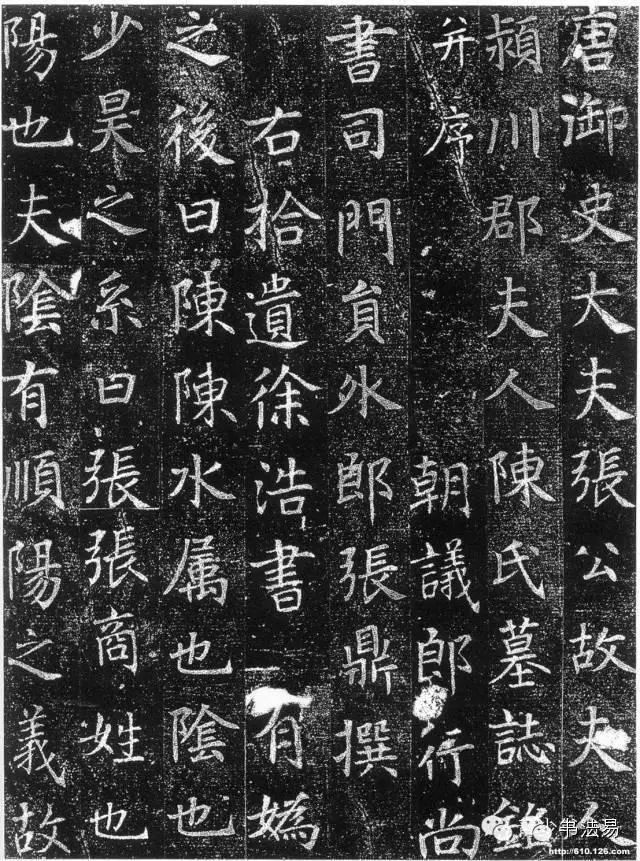 唐御史大夫張公故夫人
潁川郡夫人陳氏墓誌銘
并序 朝議郎行尚
書司門員外郎張鼎撰
右拾遺徐浩書 有嬀
之後曰陳陳水属也陰也
少昊之系曰張張商姓也
陽也夫陰有順陽之義故
小书法易
http://610.126.com